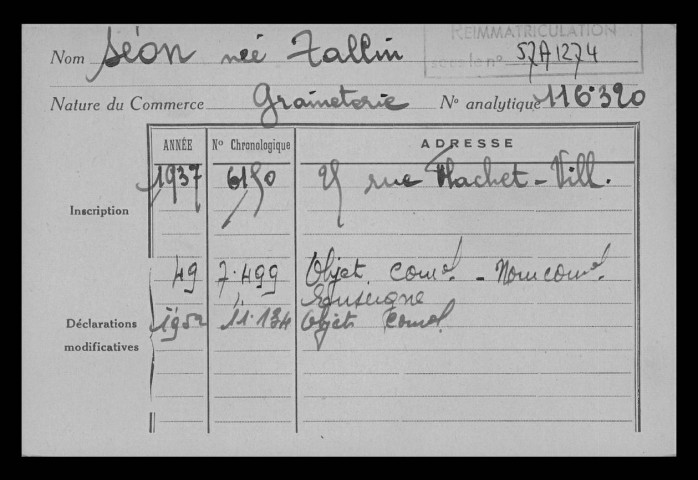 REIMMATRICULATION
Nom Séon née Tallin sous le n° 57A1274
Nature du Commerce Graineterie N° analytique 116.320
ANNÉE N° Chronologique ADRESSE
1937 6150 25 rue Hachet-Vill.
Inscription
49 7.499 Objet comal - Nom comal
Enseigne
Déclarations 1952 11.134 Objet comal
modificatives